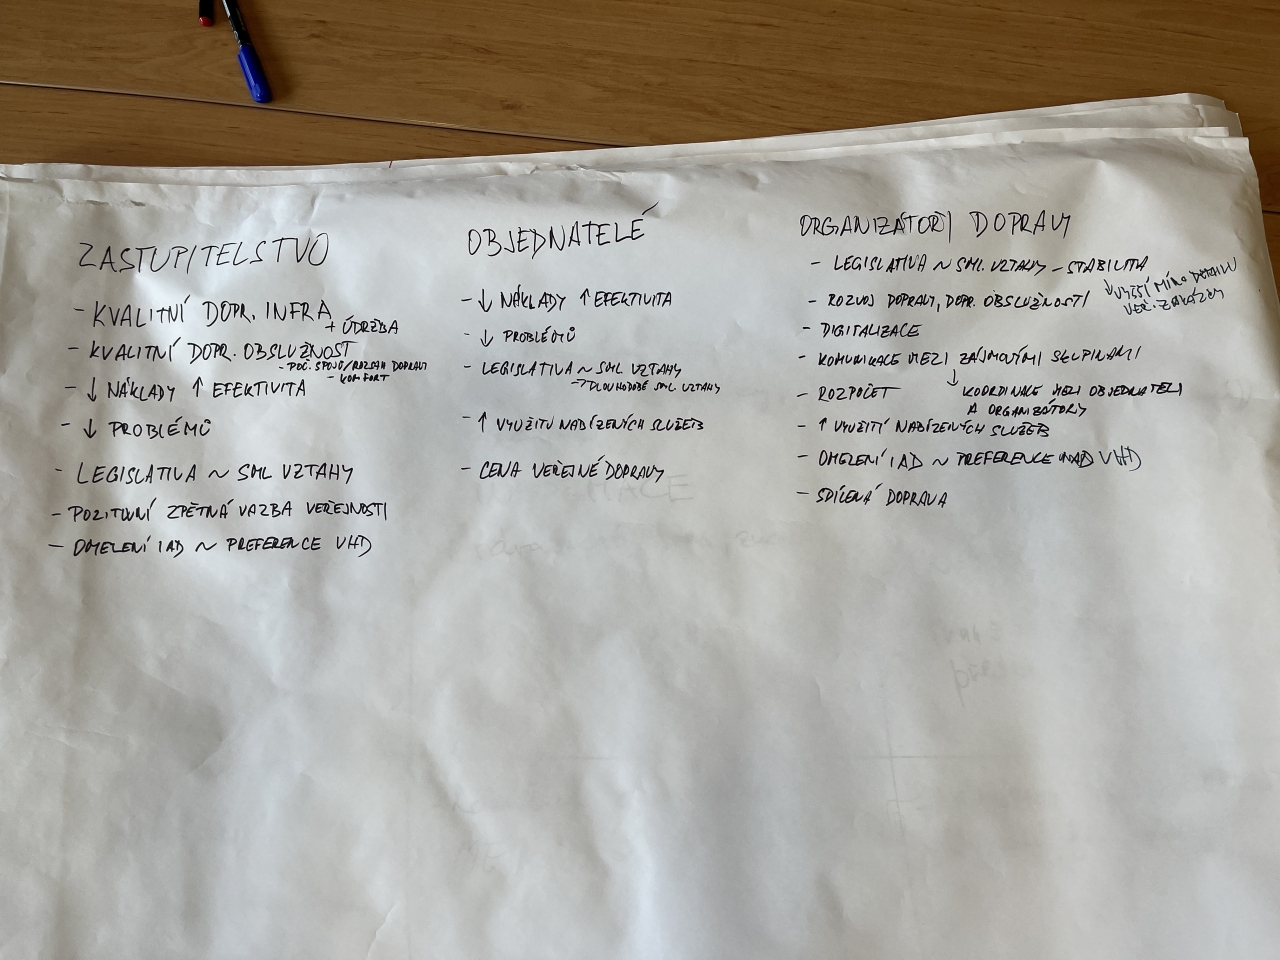 ZASTUPITELSTVO
- KVALITNÍ DOPR. INFRA
+ ÚDRŽBA
- KVALITNÍ DOPR. OBSLUŽNOST
- POČ. SPOJŮ/ROZSAH DOPRAVY
- KOMFORT
- ↓ NÁKLADY ↑ EFEKTIVITA
- ↓ PROBLÉMŮ
- LEGISLATIVA ~ SML VZTAHY
- POZITIVNÍ ZPĚTNÁ VAZBA VEŘEJNOSTI
- OMEZENÍ IAD ~ PREFERENCE VHD
OBJEDNATELÉ
- ↓ NÁKLADY ↑ EFEKTIVITA
- ↓ PROBLÉMŮ
- LEGISLATIVA ~ SML VZTAHY
→ DLOUHODOBÉ SML VZTAHY
- ↑ VYUŽITÍ NABÍZENÝCH SLUŽEB
- CENA VEŘEJNÉ DOPRAVY
ORGANIZÁTOŘI DOPRAVY
- LEGISLATIVA ~ SML. VZTAHY - STABILITA
↓ VYŠŠÍ MÍRA DETAILU
VEŘ. ZAKÁZEK
- ROZVOJ DOPRAVY, DOPR. OBSLUŽNOSTI
- DIGITALIZACE
- KOMUNIKACE MEZI ZÁJMOVÝMI SKUPINAMI
↓ KOORDINACE MEZI OBJEDNATELI
A ORGANIZÁTORY
- ROZPOČET
- ↑ VYUŽITÍ NABÍZENÝCH SLUŽEB
- OMEZENÍ IAD ~ PREFERENCE VHD
- SDÍLENÁ DOPRAVA